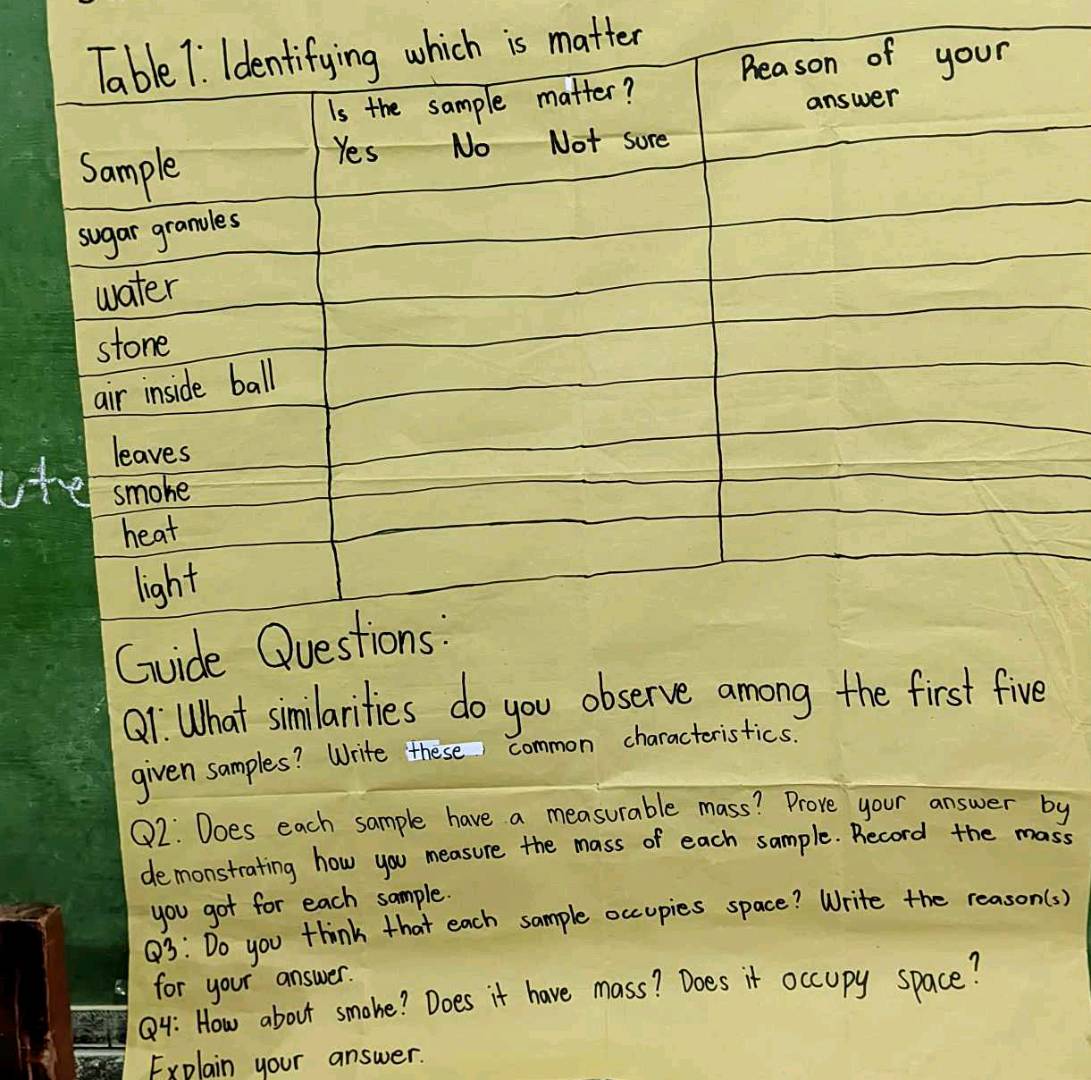 Table 1: Identifying which is matter
Is the sample matter?
Reason of your
answer
Sample
Yes No Not sure
sugar granules
water
stone
air inside ball
leaves
smoke
heat
light
Guide Questions:
Q1: What similarities do you observe among the first five
given samples? Write these common characteristics.
Q2: Does each sample have a measurable mass? Prove your answer by
demonstrating how you measure the mass of each sample. Record the mass
you got for each sample.
Q3: Do you think that each sample occupies space? Write the reason(s)
for your answer.
Q4: How about smoke? Does it have mass? Does it occupy space?
Explain your answer.